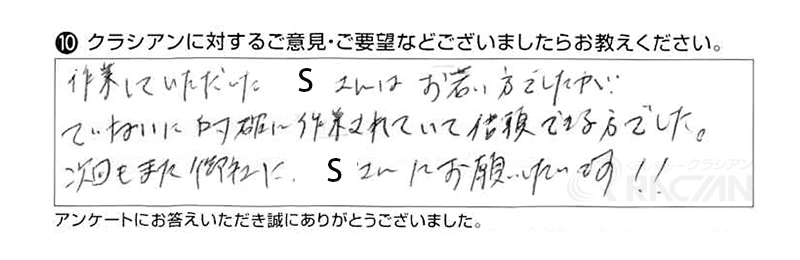 ⑩ クラシアンに対するご意見・ご要望などございましたらお教えください。
作業していただいた S さんはお若い方でしたが
ていねいに的確に作業されていて信頼できる方でした。
次回もまた御社に、S さんにお願いしたいです!!
クラシアン
QRACIAN
アンケートにお答えいただき誠にありがとうございました。